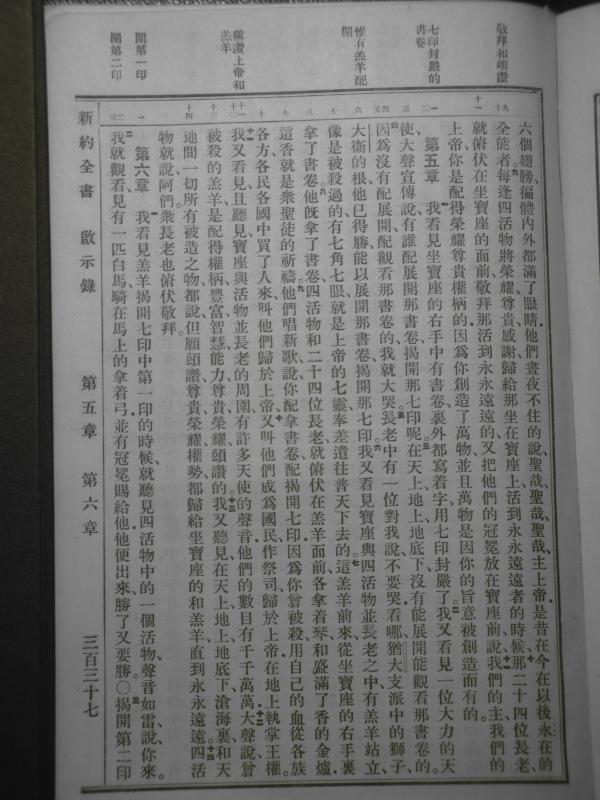 敬拜和頌讚
七印封嚴的
書卷
惟有羔羊配
開
稱讚上帝和
羔羊
開第一印
開第二印
六個翅膀徧體內外都滿了眼睛他們晝夜不住的說聖哉聖哉聖哉主上帝是昔在今在以後永在的
全能者每逢四活物將榮耀尊貴感謝歸給那坐在寶座上活到永永遠遠者的時候那二十四位長老
就俯伏在坐寶座的面前敬拜那活到永永遠遠的又把他們的冠冕放在寶座前說我們的主我們的
上帝你是配得榮耀尊貴權柄的因爲你創造了萬物並且萬物是因你的旨意被創造而有的
第五章 我看見坐寶座的右手中有書卷裏外都寫着字用七印封嚴了我又看見一位大力的天
使大聲宣傳說有誰配展開那書卷揭開那七印呢在天上地上地底下沒有能展開能觀看那書卷的
因爲沒有配展開配觀看那書卷的我就大哭長老中有一位對我說不要哭看哪猶大支派中的獅子
大衞的根他已得勝能以展開那書卷揭開那七印我又看見寶座與四活物並長老之中有羔羊站立
像是被殺過的有七角七眼就是上帝的七靈奉差遣往普天下去的這羔羊前來從坐寶座的右手裏
拿了書卷他旣拿了書卷四活物和二十四位長老就俯伏在羔羊面前各拿着琴和盛滿了香的金爐
這香就是衆聖徒的祈禱他們唱新歌說你配拿書卷配揭開七印因爲你曾被殺用自己的血從各族
各方各民各國中買了人來叫他們歸於上帝又叫他們成爲國民作祭司歸於上帝在地上執掌王權
我又看見且聽見寶座與活物並長老的周圍有許多天使的聲音他們的數目有千千萬萬大聲說曾
被殺的羔羊是配得權柄豐富智慧能力尊貴榮耀頌讚的我又聽見在天上地上地底下滄海裏和天
地間一切所有被造之物都說但願頌讚尊貴榮耀權勢都歸給坐寶座的和羔羊直到永永遠遠四活
物就說阿們衆長老也俯伏敬拜
第六章 我看見羔羊揭開七印中第一印的時候就聽見四活物中的一個活物聲音如雷說你來
我就觀看見有一匹白馬騎在馬上的拿着弓並有冠冕賜給他他便出來勝了又要勝○揭開第二印
新約全書 啟示錄 第五章 第六章 三百三十七